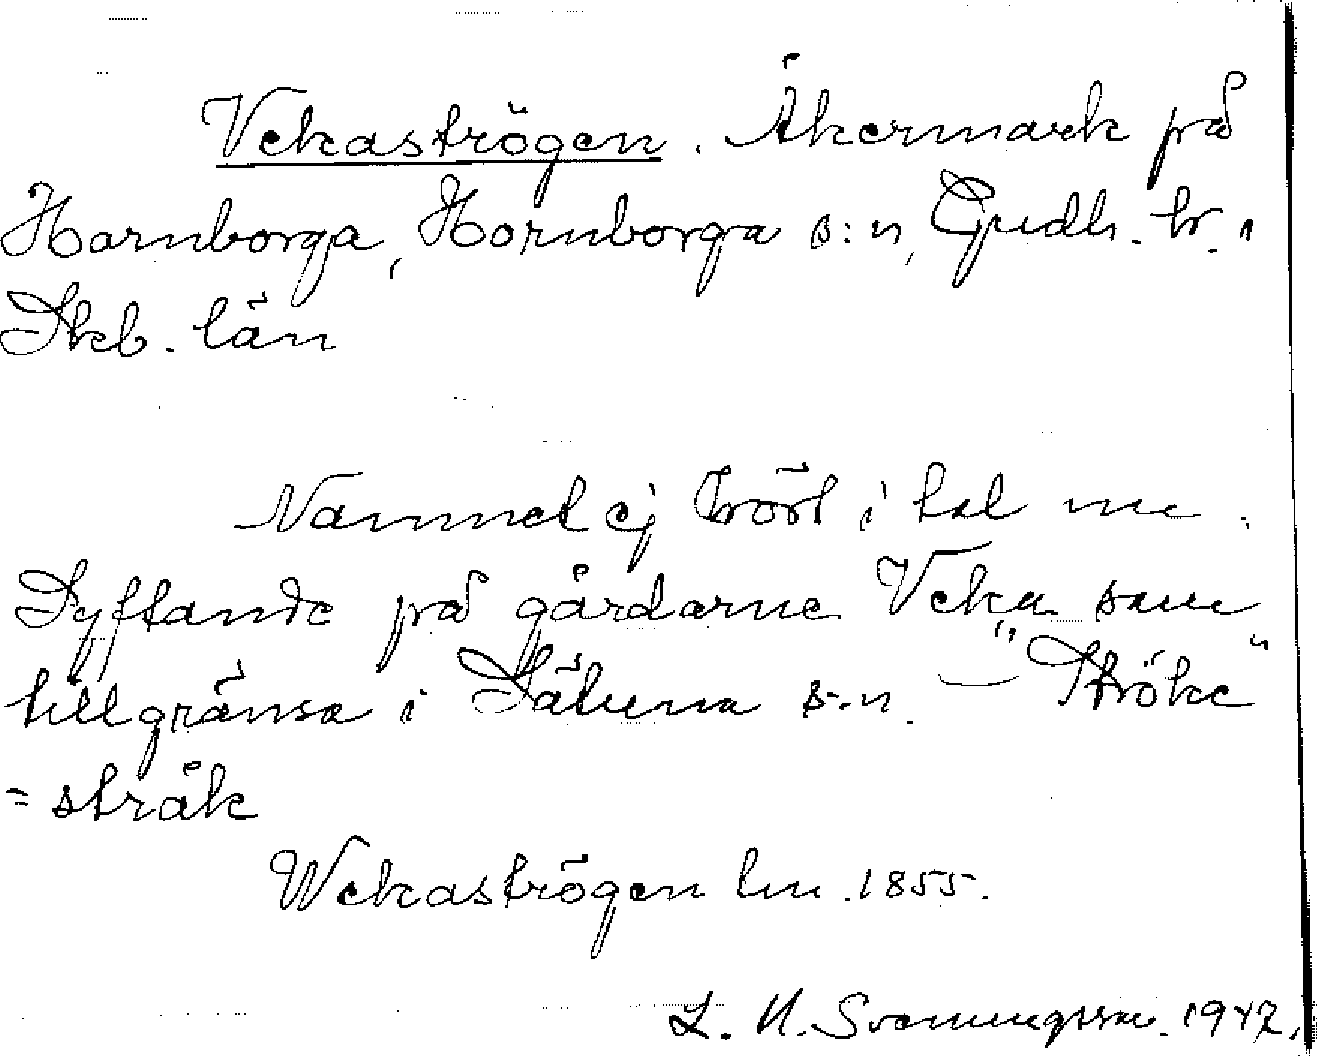 Vekaströgen. Åkermark på
Hornborga, Hornborga s:n, Gudh. hr.,
Skb. län
Namnet ej hört i tal nu.
Syftande på gårdarne Veka som
tillgränsa i Sätuna s.n. – "Ströke"
= stråk
Wekaströgen lm. 1855.
L. N. Svenungsson. 1947.